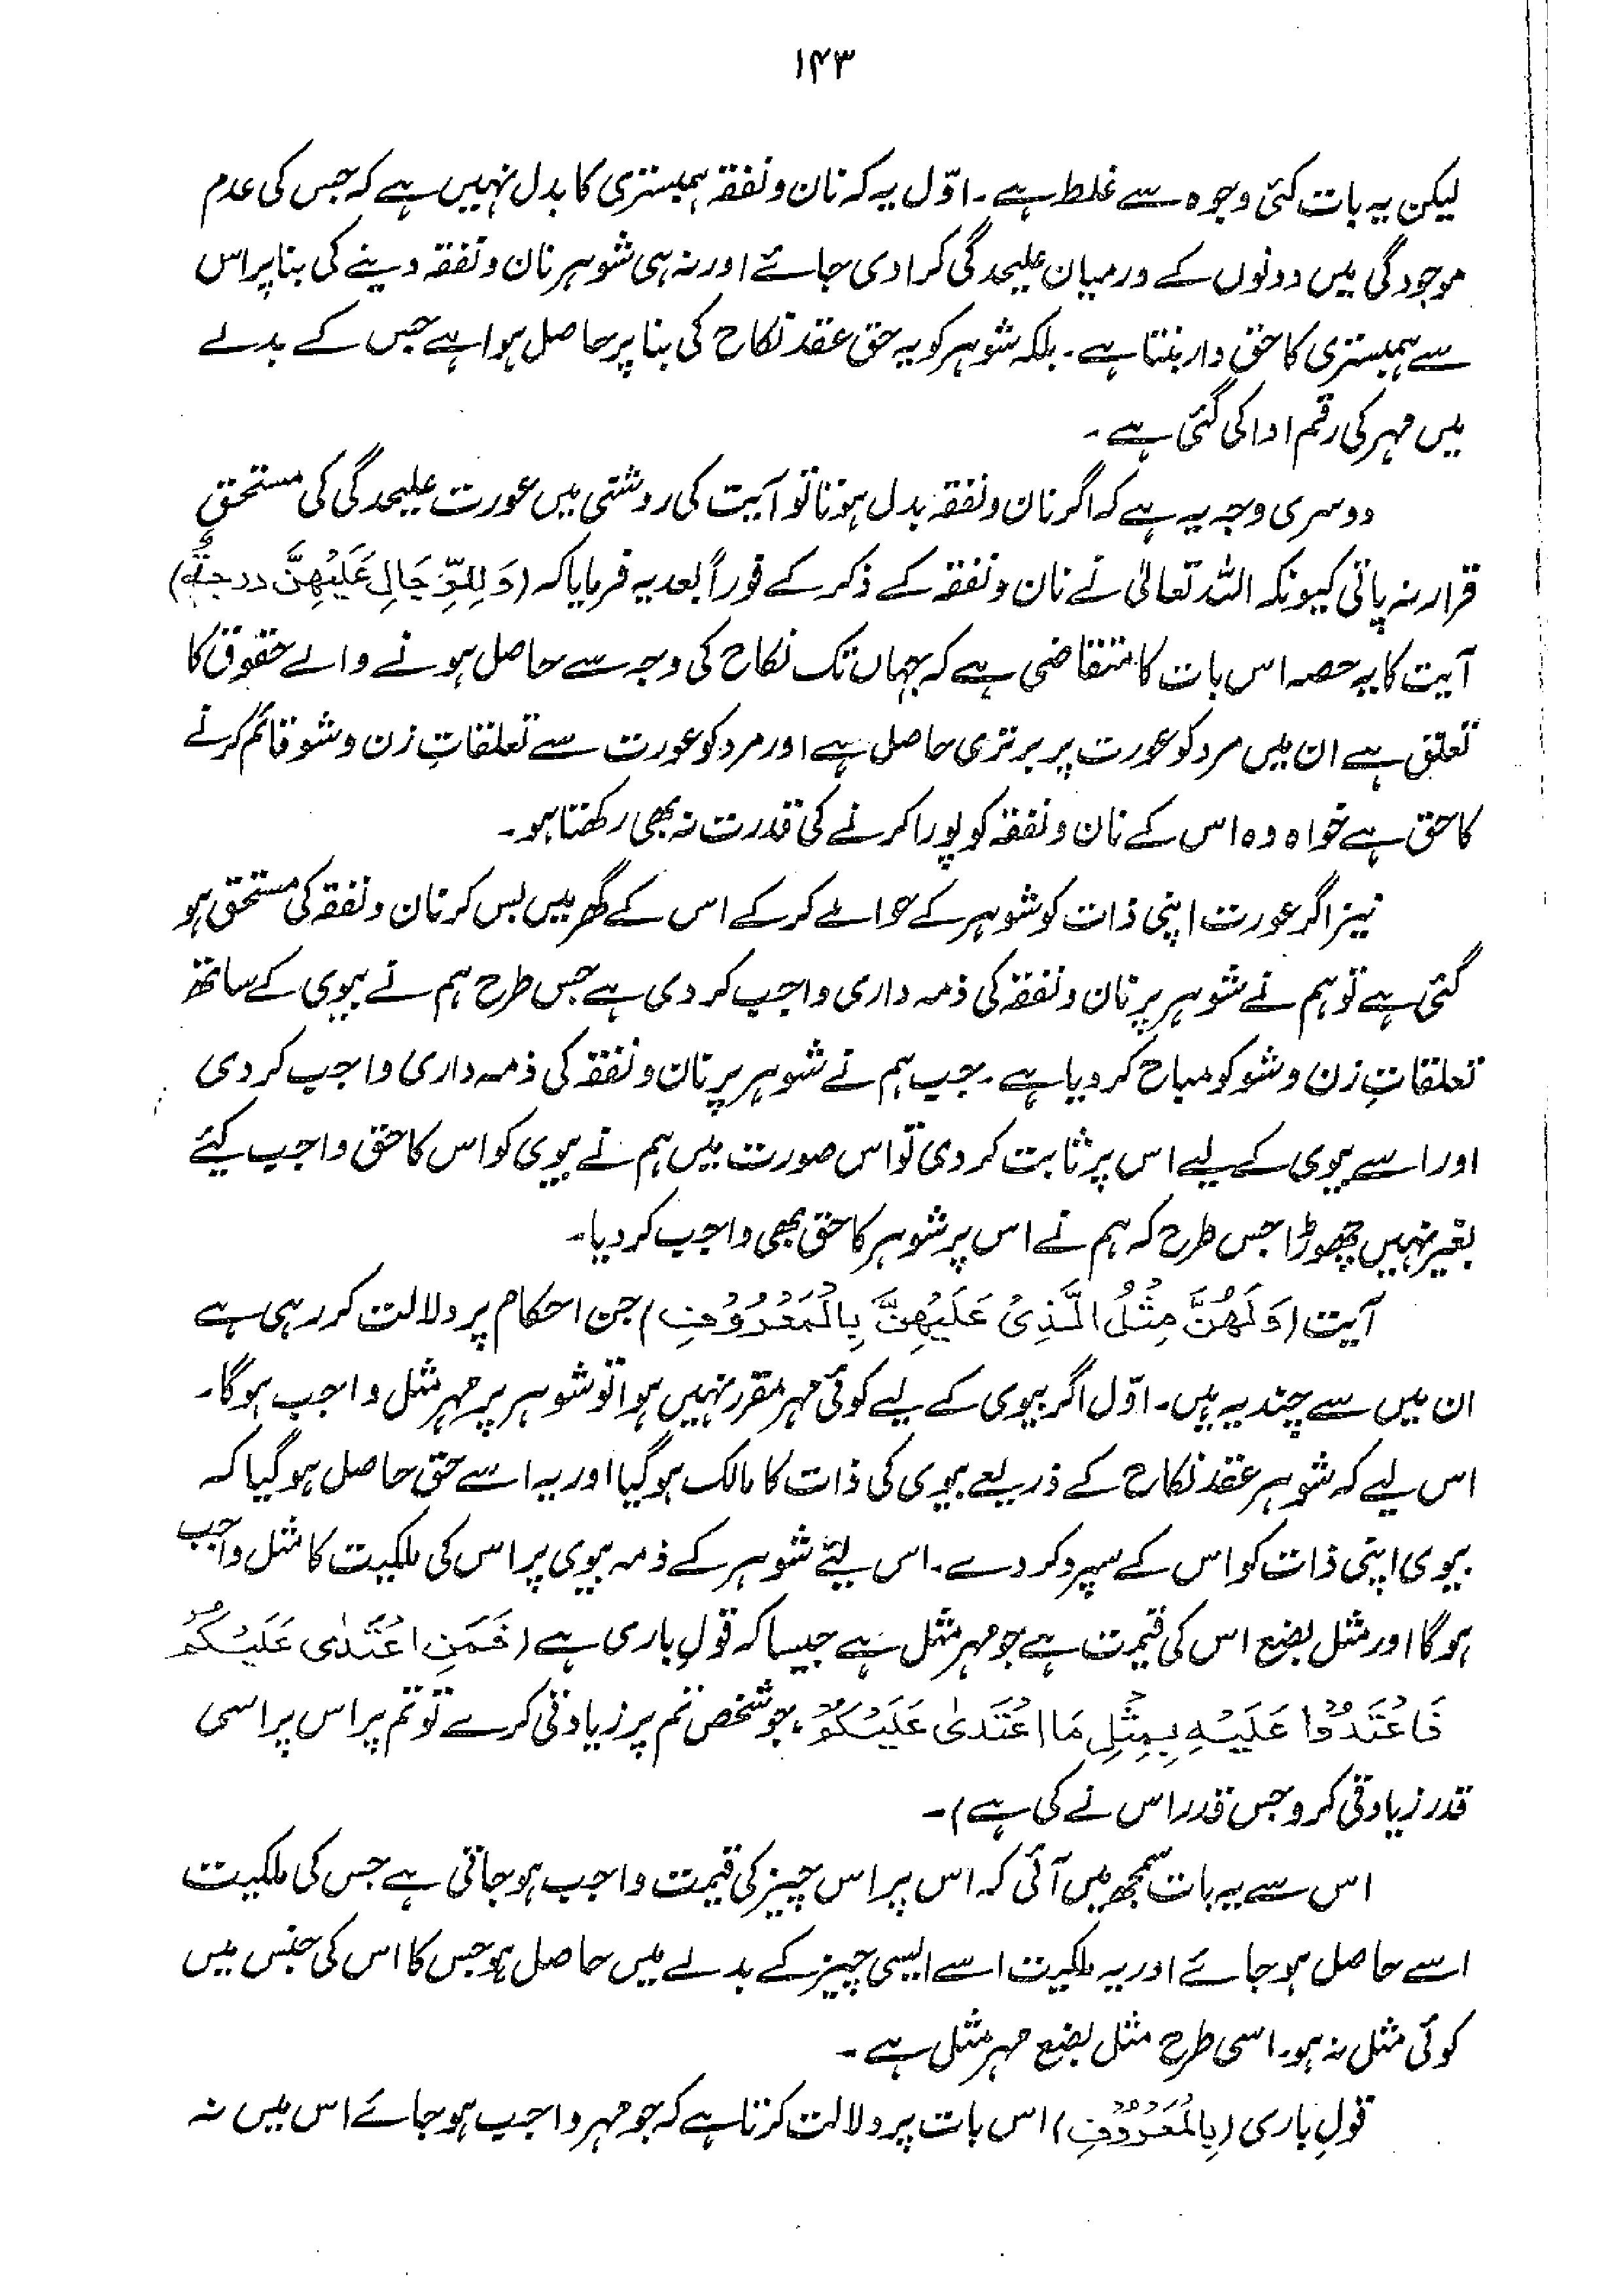 ۱۴۳
لیکن یہ بات کئی وجوہ سے غلط ہے۔ اوّل یہ کہ نان و نفقہ ہمبستری کا بدل نہیں ہے کہ جس کی عدم
موجودگی میں دونوں کے درمیان علیحدگی کرا دی جائے اور نہ ہی شوہر نان و نفقہ دینے کی بنا پر اس
سے ہمبستری کا حق دار بنتا ہے۔ بلکہ شوہر کو یہ حق عقد نکاح کی بنا پر حاصل ہوا ہے جس کے بدلے
میں مہر کی رقم ادا کی گئی ہے۔
دوسری وجہ یہ ہے کہ اگر نان و نفقہ بدل ہوتا تو آیت کی روشنی میں عورت علیحدگی کی مستحق
قرار نہ پاتی کیونکہ اللہ تعالیٰ نے نان و نفقہ کے ذکر کے فوراً بعد یہ فرمایا کہ (وَلِلرِّجَالِ عَلَيْهِنَّ دَرَجَةٌ)
آیت کا یہ حصہ اس بات کا متقاضی ہے کہ جہاں تک نکاح کی وجہ سے حاصل ہونے والے حقوق کا
تعلق ہے ان میں مرد کو عورت پر برتری حاصل ہے اور مرد کو عورت سے تعلقاتِ زن و شو قائم کرنے
کا حق ہے خواہ وہ اس کے نان و نفقہ کو پورا کرنے کی قدرت نہ بھی رکھتا ہو۔
نیز اگر عورت اپنی ذات کو شوہر کے حوالے کر کے اس کے گھر میں بس کر نان و نفقہ کی مستحق ہو
گئی ہے تو ہم نے شوہر پر نان و نفقہ کی ذمہ داری واجب کر دی ہے جس طرح ہم نے بیوی کے ساتھ
تعلقاتِ زن و شو کو مباح کر دیا ہے۔ جب ہم نے شوہر پر نان و نفقہ کی ذمہ داری واجب کر دی
اور اسے بیوی کے لیے اس پر ثابت کر دی تو اس صورت میں ہم نے بیوی کو اس کا حق واجب کیئے
بغیر نہیں چھوڑا جس طرح کہ ہم نے اس پر شوہر کا حق بھی واجب کر دیا۔
آیت (وَلَهُنَّ مِثْلُ الَّذِیْ عَلَيْهِنَّ بِالْمَعْرُوْفِ) جن احکام پر دلالت کر رہی ہے
ان میں سے چند یہ ہیں۔ اوّل اگر بیوی کے لیے کوئی مہر مقرر نہیں ہوا تو شوہر پر مہر مثل واجب ہوگا۔
اس لیے کہ شوہر عقد نکاح کے ذریعے بیوی کی ذات کا مالک ہوگیا اور یہ اسے حق حاصل ہوگیا کہ
بیوی اپنی ذات کو اس کے سپرد کر دے۔ اس لئے شوہر کے ذمہ بیوی پر اس کی ملکیت کا مثل واجب
ہوگا اور مثل بضع اس کی قیمت ہے جو مہر مثل ہے جیسا کہ قولِ باری ہے (فَمَنِ اعْتَدٰی عَلَيْكُمْ
فَاعْتَدُوْا عَلَيْهِ بِمِثْلِ مَا اعْتَدٰی عَلَيْكُمْ، جو شخص تم پر زیادتی کرے تو تم پر اس پر اسی
قدر زیادتی کرو جس قدر اس نے کی ہے)۔
اس سے یہ بات سمجھ میں آئی کہ اس پر اس چیز کی قیمت واجب ہو جاتی ہے جس کی ملکیت
اسے حاصل ہو جائے اور یہ ملکیت اسے ایسی چیز کے بدلے میں حاصل ہو جس کا اس کی جنس میں
کوئی مثل نہ ہو۔ اسی طرح مثل بضع مہر مثل ہے۔
قولِ باری (بِالْمَعْرُوْفِ) اس بات پر دلالت کرتا ہے کہ جو مہر واجب ہو جائے اس میں نہ